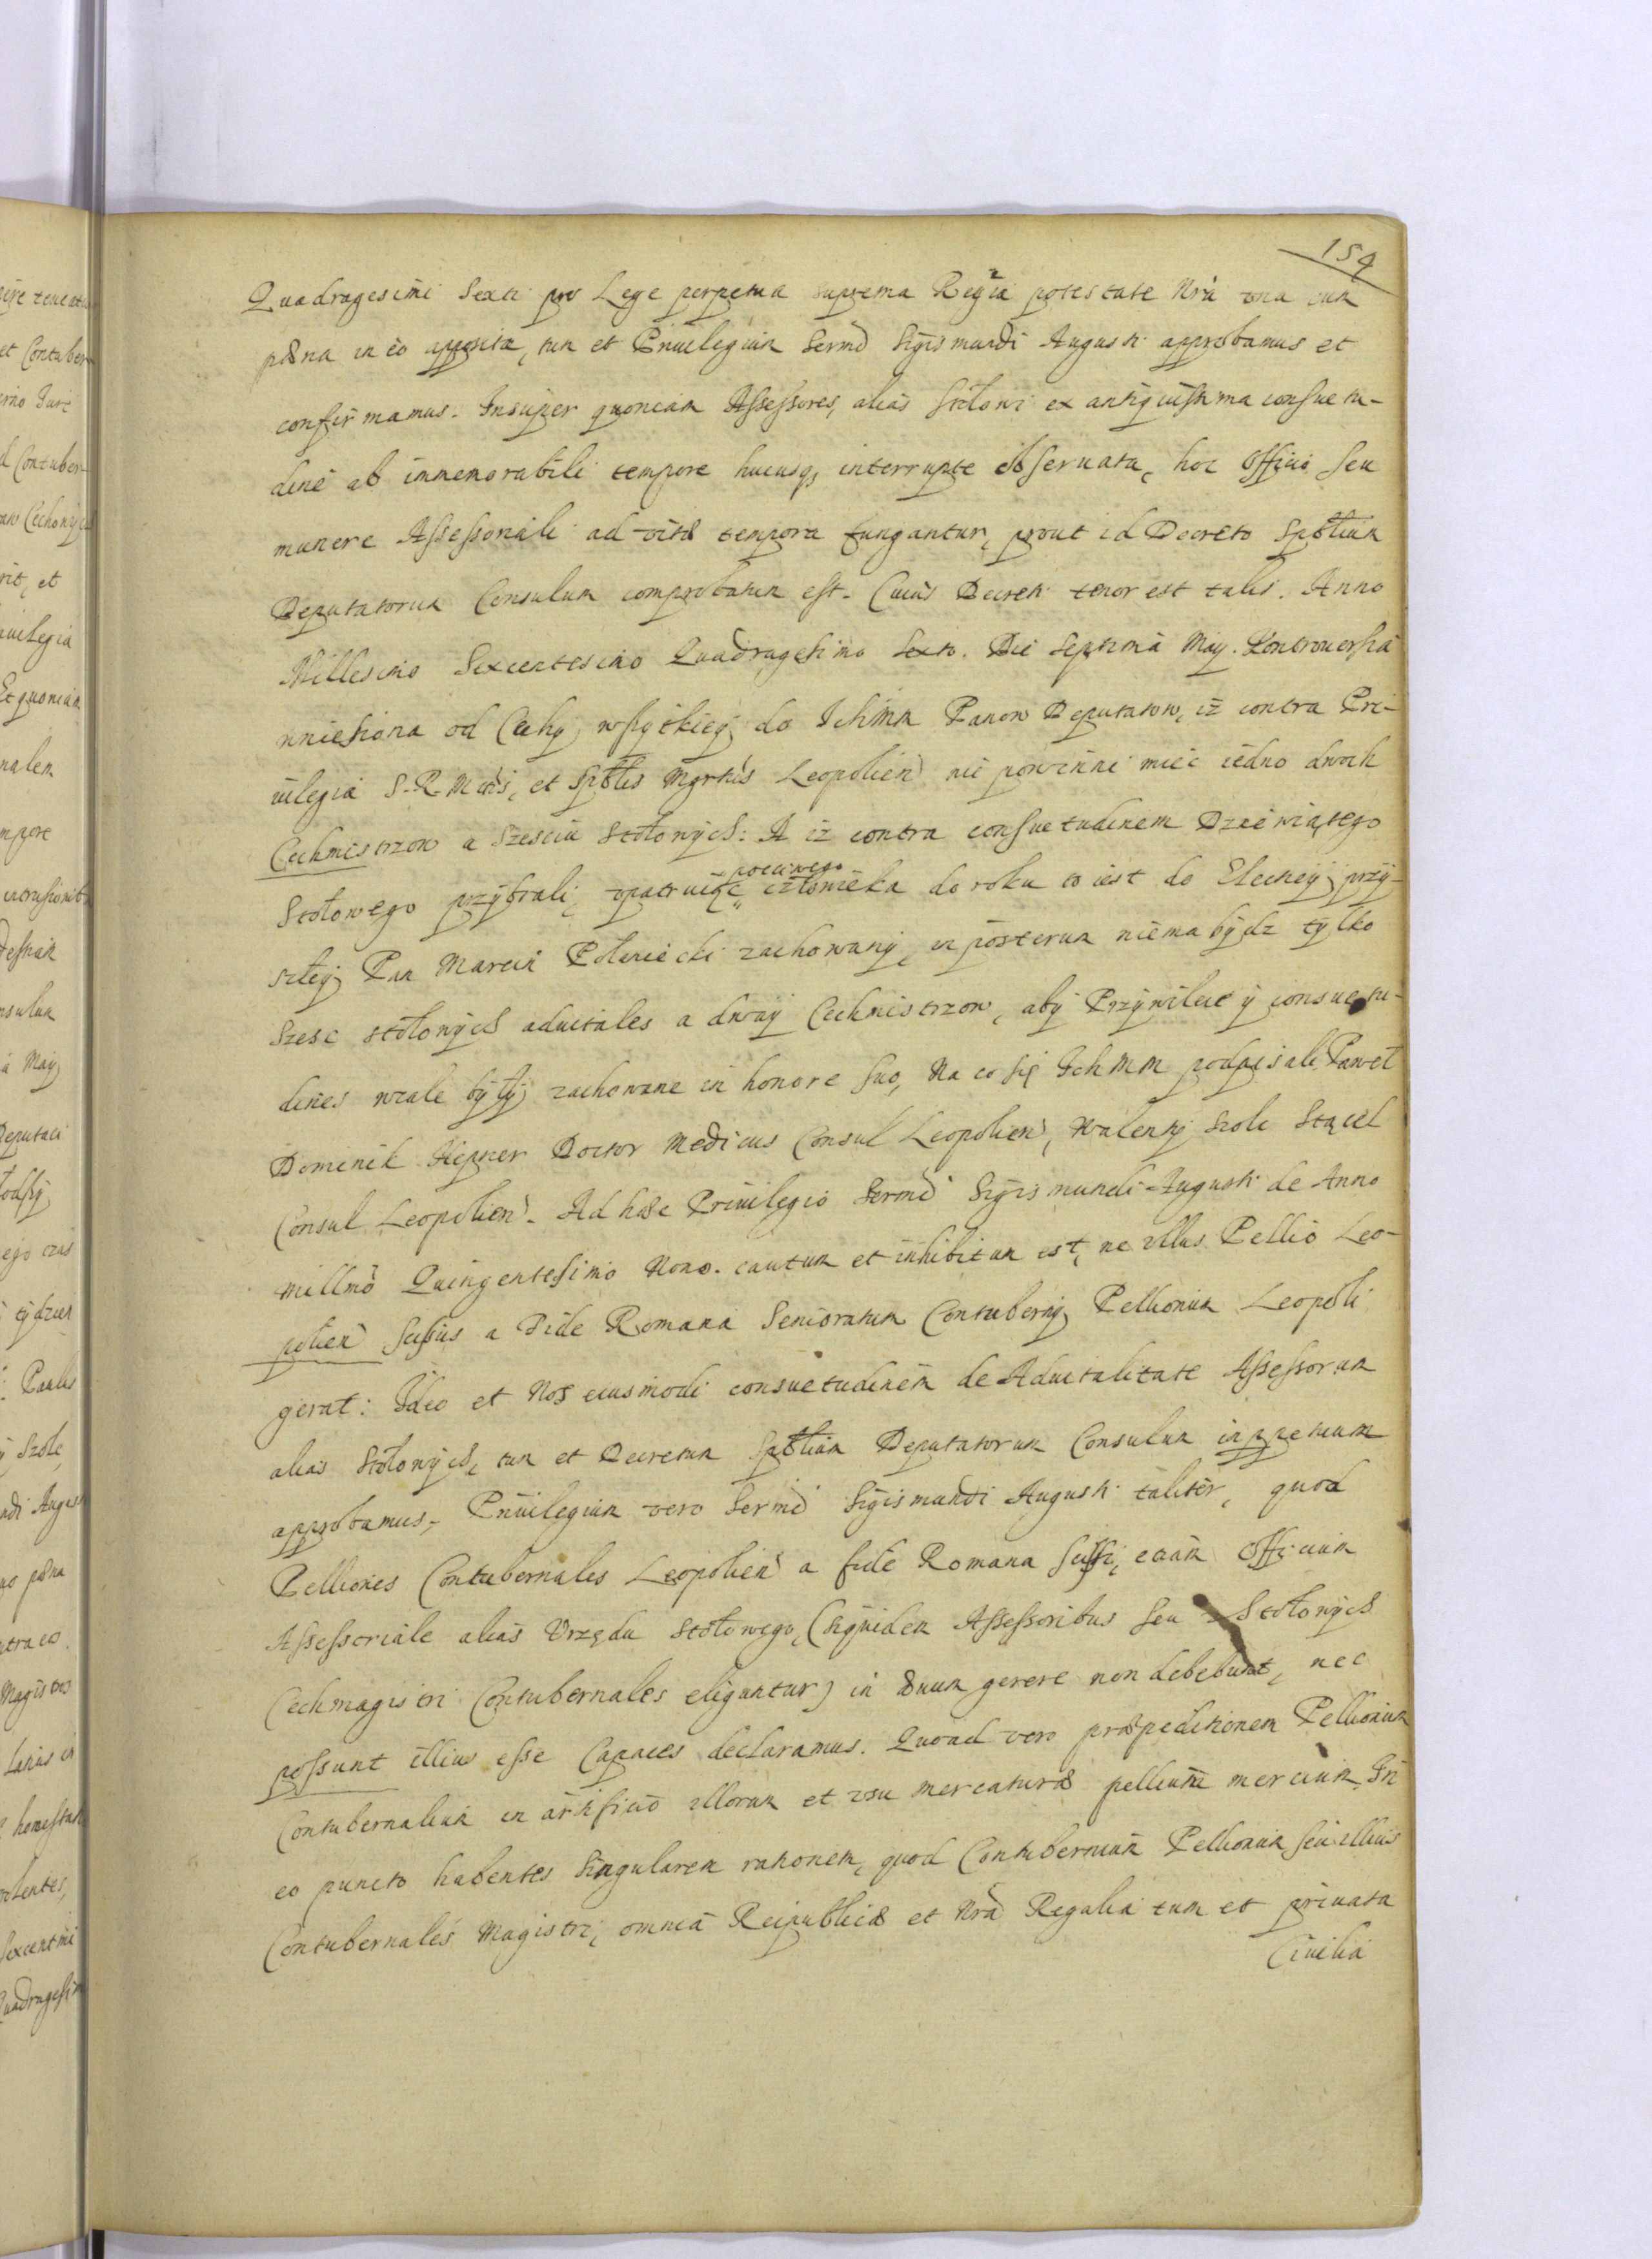 154
Quadragesimi Sexti pro Lege perpetua suprema Regia potestate Nrã vna cum
pæna in eo apposita, tum et Priuilegium Sermi Sigismundi Augusti approbamus et
confirmamus. Insuper quoniam Assessores, alias Stołowi ex antiquissima consuetu-
dine ab immemorabili tempore hucusq, interrupte obseruata, hoc Officio seu
munere Assessoriali ad vitæ tempora fungantur, prout id Decreto Spbliũm
Deputatorum Consulum comprobatum est. Cuius Decreti tenor est talis. Anno
Millesimo Sexcentesimo Quadragesimo Sexto. Die Septima May. Kontrouersia
wniesiona od Cechÿ wszÿtkieÿ do Ichmm Panow Deputatow, iż contra Pri-
uilegia S. R. Mttis, et Spblis Mgrtus Leopolien nie powinni mieć iedno dwoch
Cechmistrzow a Szesciu Stołowÿch: A iż contra consuetudinem Dziewiątego
Stołowego przÿbrali, vpatruiąc poczciwego człowieka do roku to iest do Elecÿey przÿ-
szłeÿ Pan Marcin zachowanÿ, in posterum niema bÿdz tÿlko
Szesc stołowÿch aduitales a dwaÿ Cechmistrzow, abÿ Przÿwileie ÿ consuetu-
dines wcale bÿłÿ zachowane in honore suo, Na co się Ichmm podpisali Paweł
Dominik Hepner Doctor Medicus Consul Leopolien, Walentÿ Szolc Stącel
Consul Leopolien. Ad hæc Priuilegio Sermi Sigismundi Augusti de Anno
millmo Quingentesimo Nono. cautum et inhibitum est, ne vllus Pellio Leo-
polien Scissus a Fide Romana Senioratum Contubernÿ Pellionum Leopoli
gerat: Ideo et Nos eiusmodi consuetudinem de Aduitalitate Assessorum
alias Stołowÿch, tum et Decretum Spblium Deputatorum Consulum in ppetuum
approbamus, Priuilegium vero Sermi Sigismundi Augusti taliter, quod
Pelliones Contubernales Leopolien a fide Romana scissi, etiam Officium
Assessoriale alias Vrzędu Stołowego, (siquidem Assessoribus seu Stołowÿch
Cechmagistri Contubernales eliguntur) in æuum gerere non debebunt, nec
possunt illius esse Capaces declaramus. Quoad vero præpeditionem Pellionum
Contubernalium in artificio illorum et vsu mercaturæ pellium mercium. In
eo puncto habentes Singularem rationem, quod Contubernium Pellionum seu illius
Contubernales Magistri, omnia Reipublicæ et Nrã Regalia tum et priuata
Ciuilia